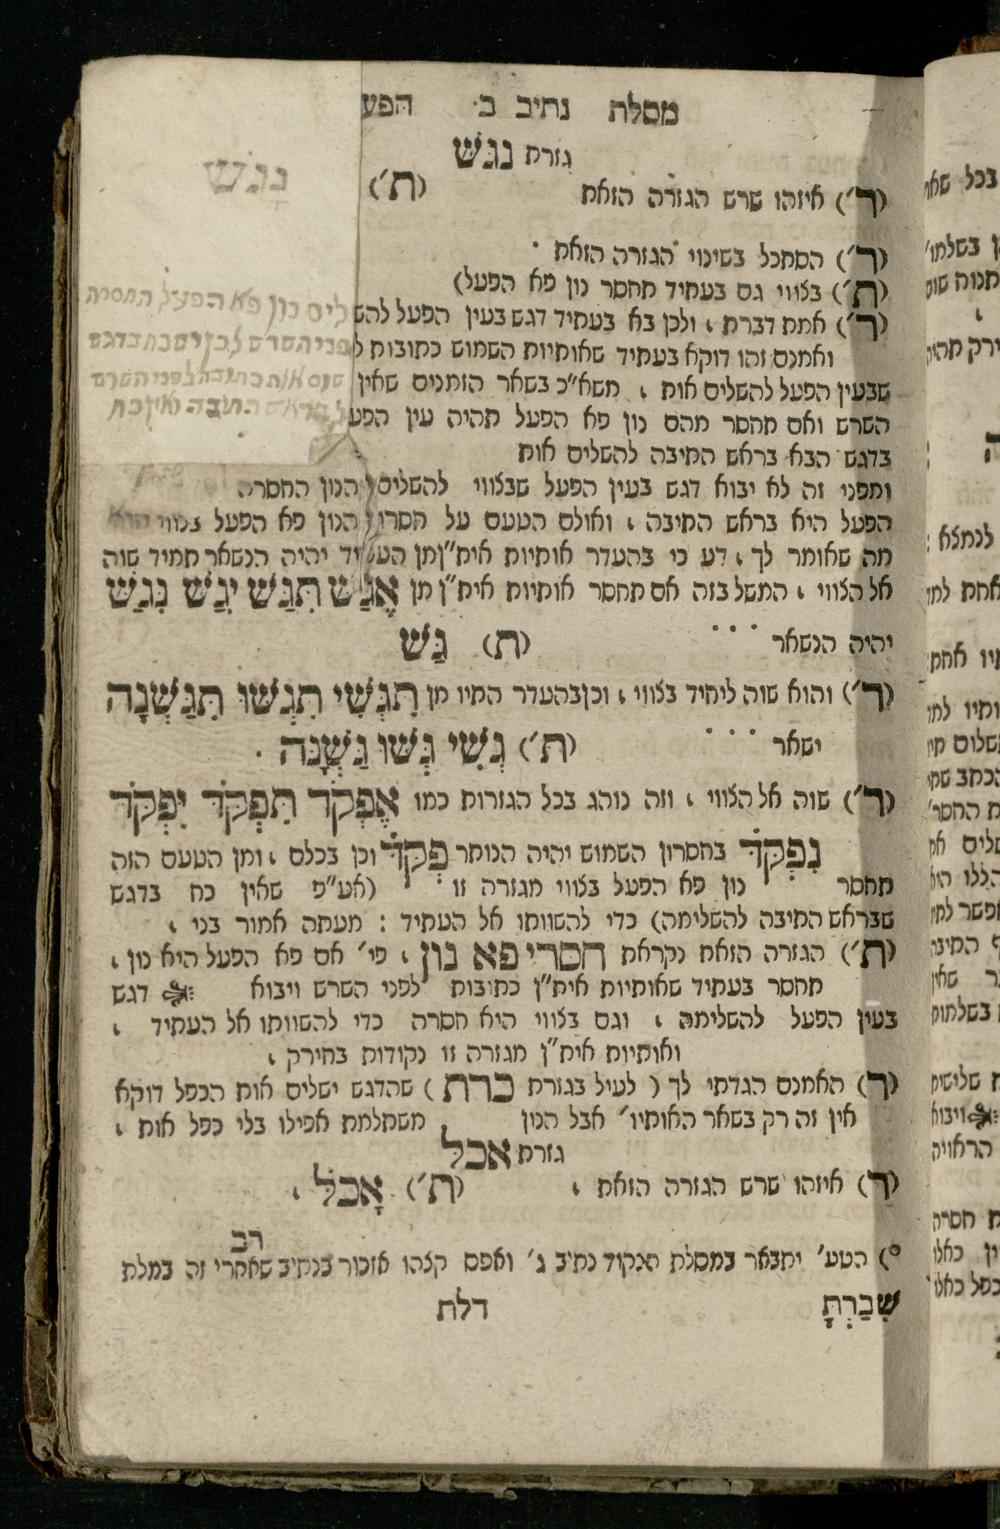 מסלת נתיב ב׳ הפע
גזרת נגש
נָגַשׁ
(ר׳) איזהו שרש הגזרה הזאת (ת׳)
(ר׳) הסתכל בשינוי הגזרה הזאת
(ת׳) בצווי גם בעתיד תחסר נון פא הפעל)
(ר׳) אמת דברת, ולכן בא בעתיד דגש בעין הפעל להש
ליס נון פא הפעל החסרה
ואמנם זהו דוקא בעתיד שאותיות השמוש כתובות ל
פני השרש לכן יש כח בדגש
שבעין הפעל להשלים אות, משא״כ בשאר הזמנים שאין
שום אות כתובה לפני השרש
השרש ואם תחסר מהם נון פא הפעל תהיה עין הפע
ל בראש התיבה ואין כח
בדגש הבא בראש התיבה להשלים אות
ומפני זה לא יבוא דגש בעין הפעל שבצווי להשלים הנון החסרה
הפעל היא בראש התיבה, ואולם הטעם על חסרון הנון פא הפעל בצווי הוא
מה שאומר לך, דע כי בהעדר אותיות אית״ן מן העתיד יהיה הנשאר תמיד שוה
אל הצווי, המשל בזה אם תחסר אותיות אית״ן מן אֶגַּשׁ תִּגַּשׁ יִגַּשׁ נִגַּשׁ
יהיה הנשאר (ת) גַּשׁ
(ר׳) והוא שוה ליחיד בצווי, וכן בהעדר התיו מן תִּגְּשִׁי תִּגְּשׁוּ תִּגַּשְׁנָה
ישאר (ת׳) גְּשִׁי גְּשׁוּ גַּשְׁנָה
(ר׳) שוה אל הצווי, וזה נוהג בכל הגזרות כמו אֶפְקֹד תִּפְקֹד יִפְקֹד
נִפְקֹד בחסרון השמוש יהיה הנותר פְּקֹד וכן בכלם, ומן הטעם הזה
תחסר נון פא הפעל בצווי מגזרה זו (אע״פ שאין כח בדגש
שבראש התיבה להשלימה) כדי להשוותו אל העתיד : מעתה אמור בני,
(ת׳) הגזרה הזאת נקראת חסרי פא נון, פי׳ אם פא הפעל היא נון,
תחסר בעתיד שאותיות אית״ן כתובות לפני השרש ויבוא דגש
בעין הפעל להשלימה, וגם בצווי היא חסרה כדי להשוותו אל העתיד,
ואותיות אית״ן מגזרה זו נקודות בחירק,
(ר) האמנם הגדתי לך (לעיל בגזרת כרת) שהדגש ישלים אות הכפל דוקא
אין זה רק בשאר האותיו׳ אבל הנון משתלמת אפילו בלי כפל אות,
גזרת אכל
(ר) איזהו שרש הגזרה הזאת, (ת׳) אָכַל,
רב
°) הטע׳ יתבאר במסלת הנקוד נתיב ג׳ ואפס קצהו אזכור בנתיב שאחרי זה במלת
שִׁבַּרְתָּ דלת